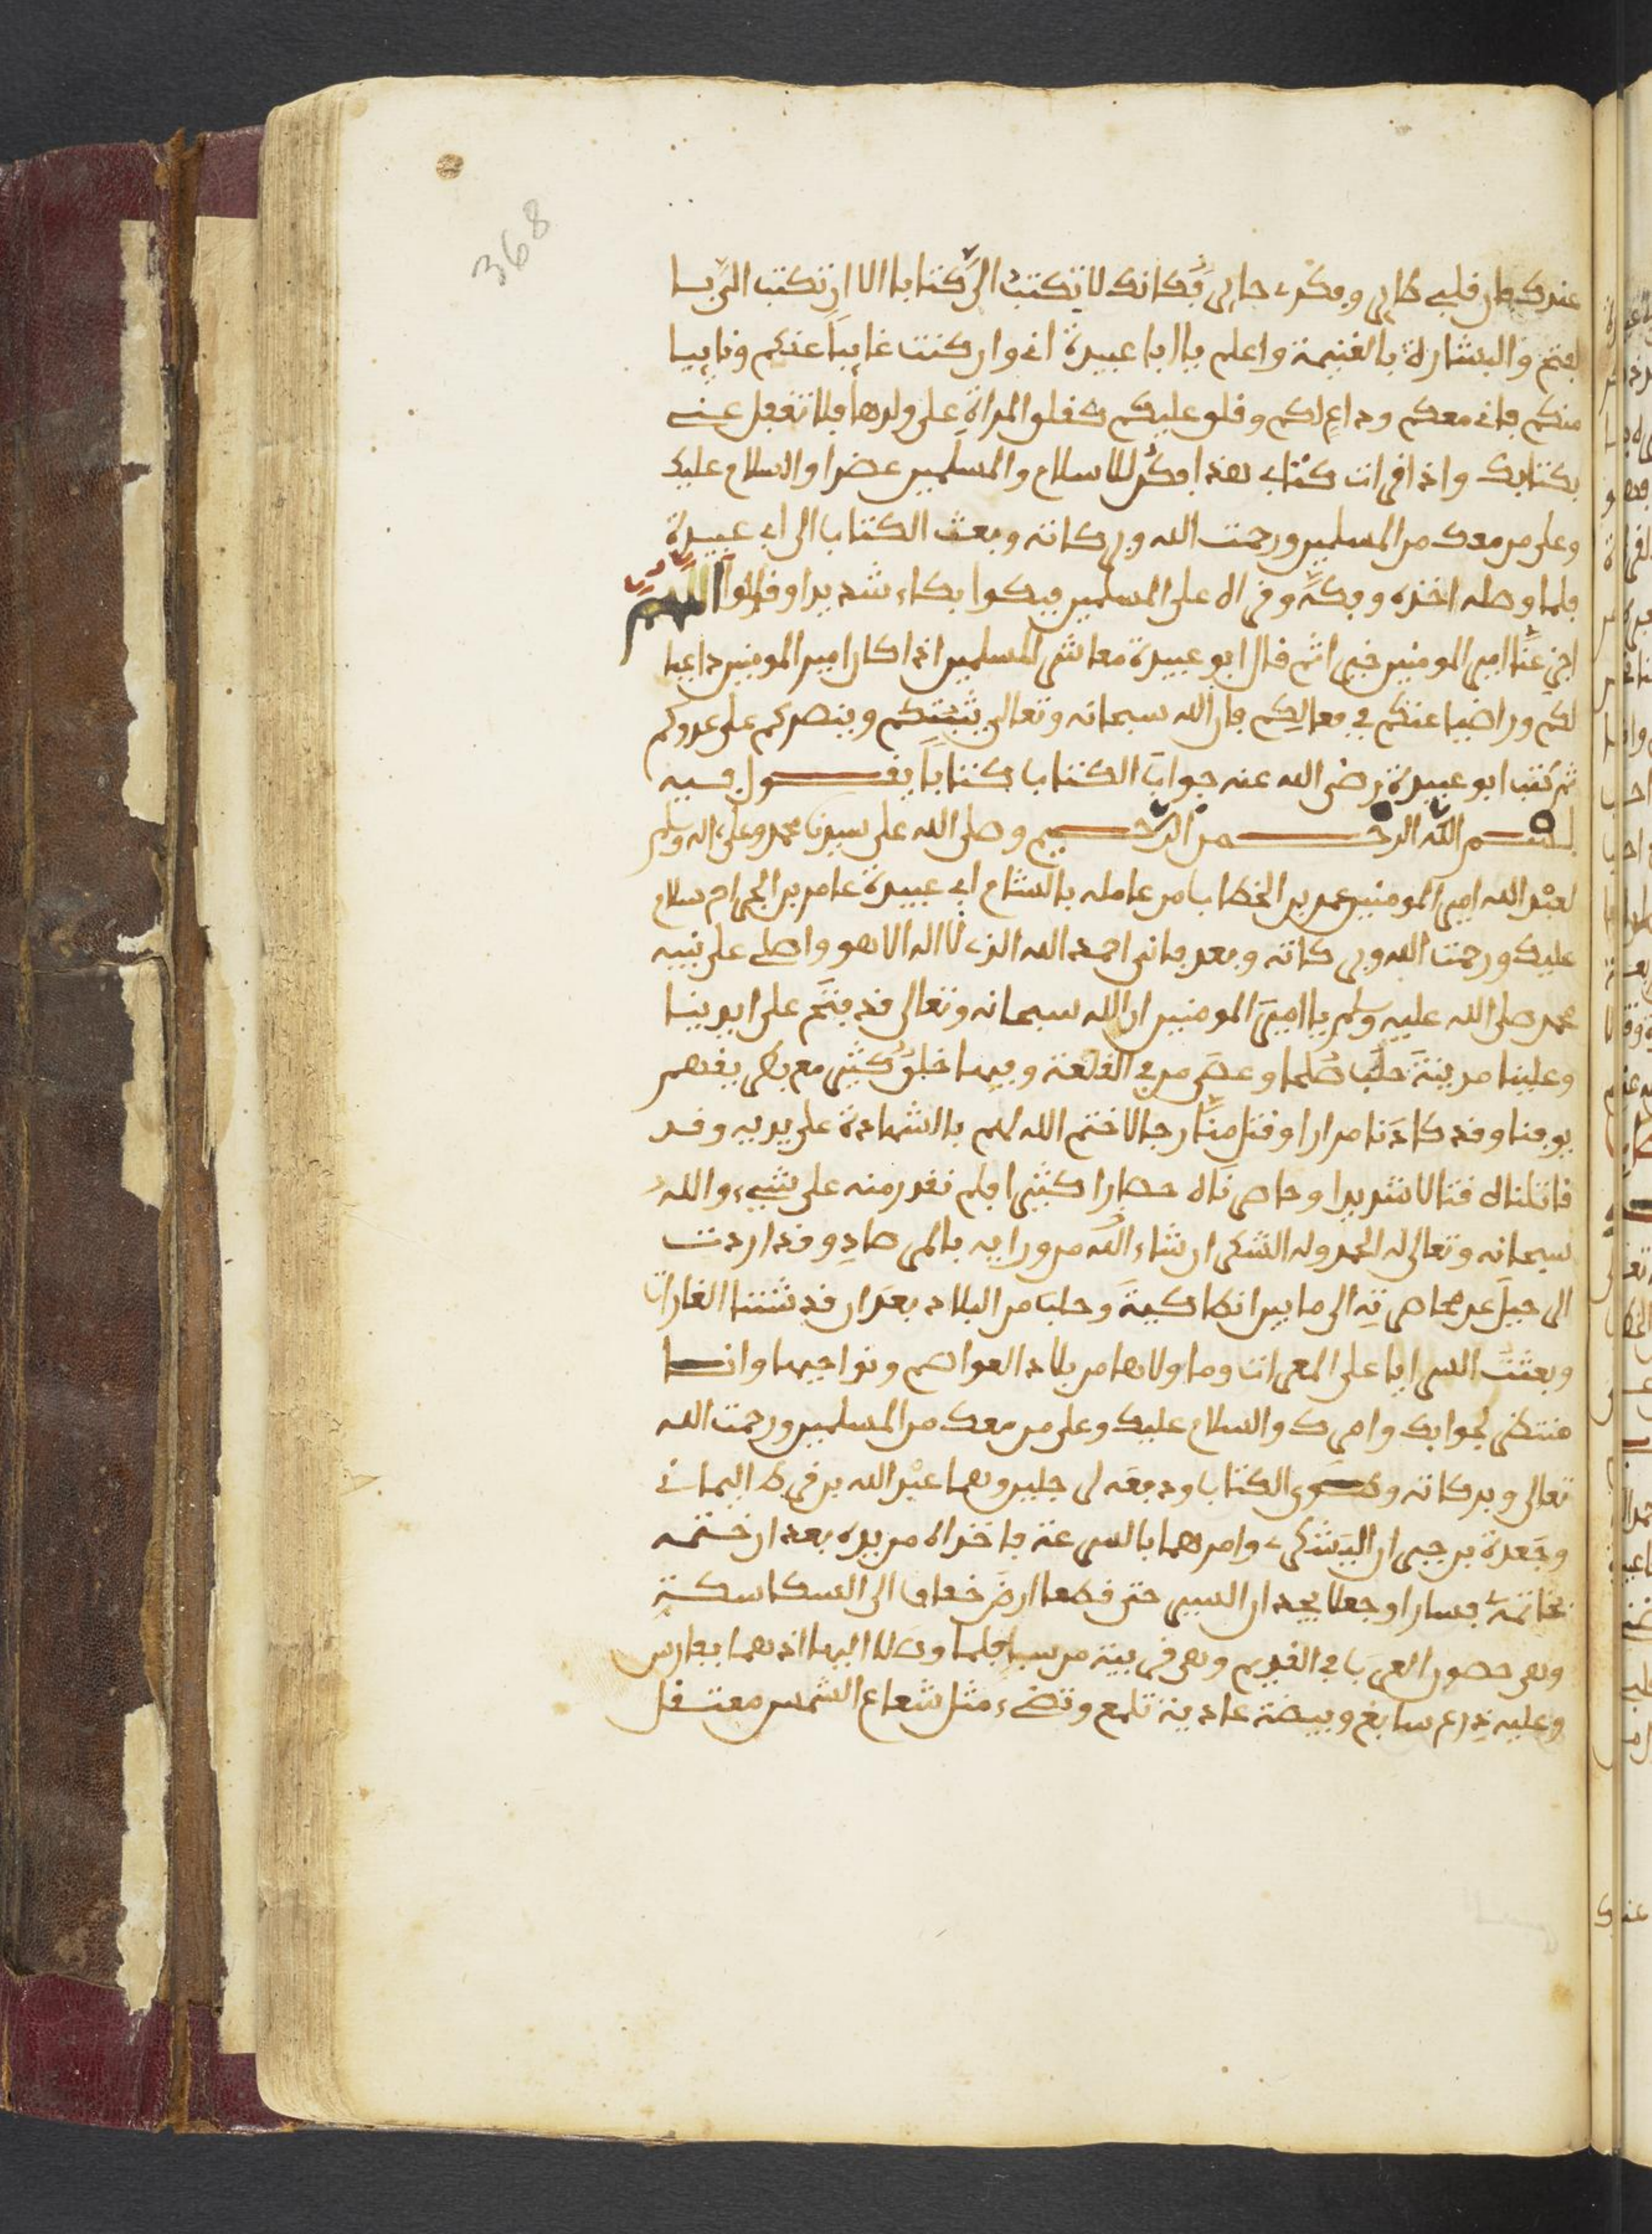 368
عندك فان قلبي طاير وفكري حاير فكانك لا تكتب الي كتابا الا ان تكتب الي بسا
لفتح والبشارة بالغنيمة واعلم يا ابا عبيدة اني وان كنت غايبا عنكم ونايبا
منكم فاني معكم وداع لكم وقلق عليكم كقلق المراة على ولدها فلا تغفل عني
بكتابك واذا قرات كتابي هذا فكن للاسلام والمسلمين عضدا والسلام عليك
وعلى من معك من المسلمين ورحمت الله وبركاته وبعث الكتاب الى ابي عبيدة
فلما وصله اخذه وفكه وقراه على المسلمين فبكوا بكاء شديدا وقالوا اللهم
اجز عنا امير المومنين خيرا ثم قال ابو عبيدة معاشر المسلمين اذا كان امير المومنين داعيا
لكم وراضيا عنكم في فعالكم فان الله سبحانه وتعالى يثبتكم وينصركم على عدوكم
ثم كتب ابو عبيدة رضي الله عنه جواب الكتاب كتابا يقول فيه
بسم الله الرحمن الرحيم وصلى الله على سيدنا محمد وعلى اله وسلم
لعبد الله امير المومنين عمر بن الخطاب من عامله بالشام ابي عبيدة عامر بن الجراح سلام
عليك ورحمت الله وبركاته وبعد فاني احمد الله الذي لا اله الا هو واصلي على نبيه
محمد صلى الله عليه وسلم يا امير المومنين ان الله سبحانه وتعالى قد فتح على ايدينا
وعلينا مدينة حلب صلحا وعصى من في القلعة وفيها خلق كثير مع بطريقهم
يوقنا وقد كادنا مرارا وقتل منا رجالا ختم الله لهم بالشهادة على يديه وقد
قاتلناه قتالا شديدا وحاصرناه حصارا كثيرا فلم نقدر منه على شيء والله
سبحانه وتعالى له الحمد وله الشكر ان شاء الله من ورايه بالمرصاد وقد اردت
الرحيل عن محاصرته الى ما بين انطاكية وحلب من البلاد بعد ان قد شننا الغارات
وبعثت السرايا على المعرات وما ولاها من بلاد العواصم ونواحيها وانا
منتظر لجوابك وامرك والسلام عليك وعلى من معك من المسلمين ورحمت الله
تعالى وبركاته وطوى الكتاب ودفعه لرجلين وهما عبد الله بن قرط اليماني
وجعدة بن جبر ان اليشكري وامرهما بالسرعة فاخذاه من يده بعد ان ختمه
بخاتمه فسارا وجعلا يجدان السير حتى قطعا ارض خفاف الى السكاسكة
وهي حصون العرب في القديم وهي قريبة من سبا فلما وصلا اليها اذ هما بفارس
وعليه درع سابغ وبيضة عادية تلمع وتضيء مثل شعاع الشمس معتقل